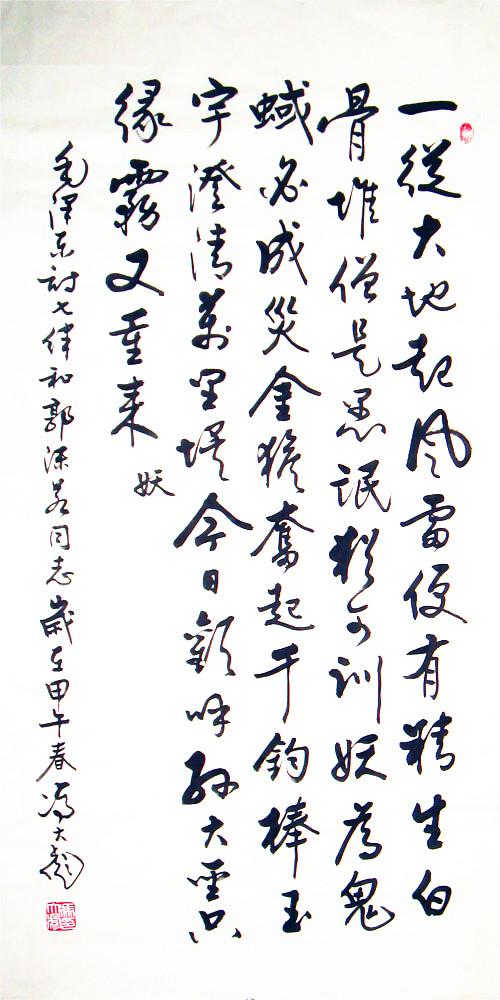 一從大地起风雷便有精生白
骨堆僧是愚氓猶可訓妖為鬼
蜮必成災金猴奮起千鈞棒玉
宇澄清萬里埃今日歡呼孫大聖只
緣霧又重来
妖
毛泽东詩七律和郭沫若同志歲在甲午春馮大彪